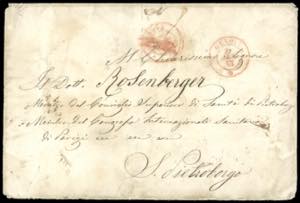 Al Chiarissimo Signore
Il Dott. Rosenberger
Membro del Consiglio Superiore di Sanità di Pietroburgo
e Membro del Congresso Internazionale Sanitario
di Parigi
S. Pietroburgo